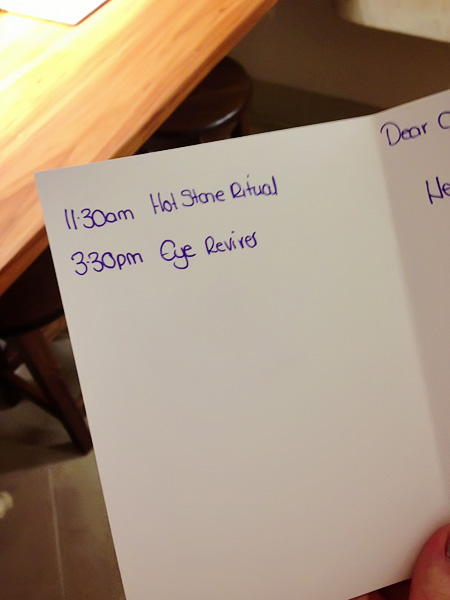 11.30am Hot Stone Ritual
3.30pm Eye Reviver
Dear